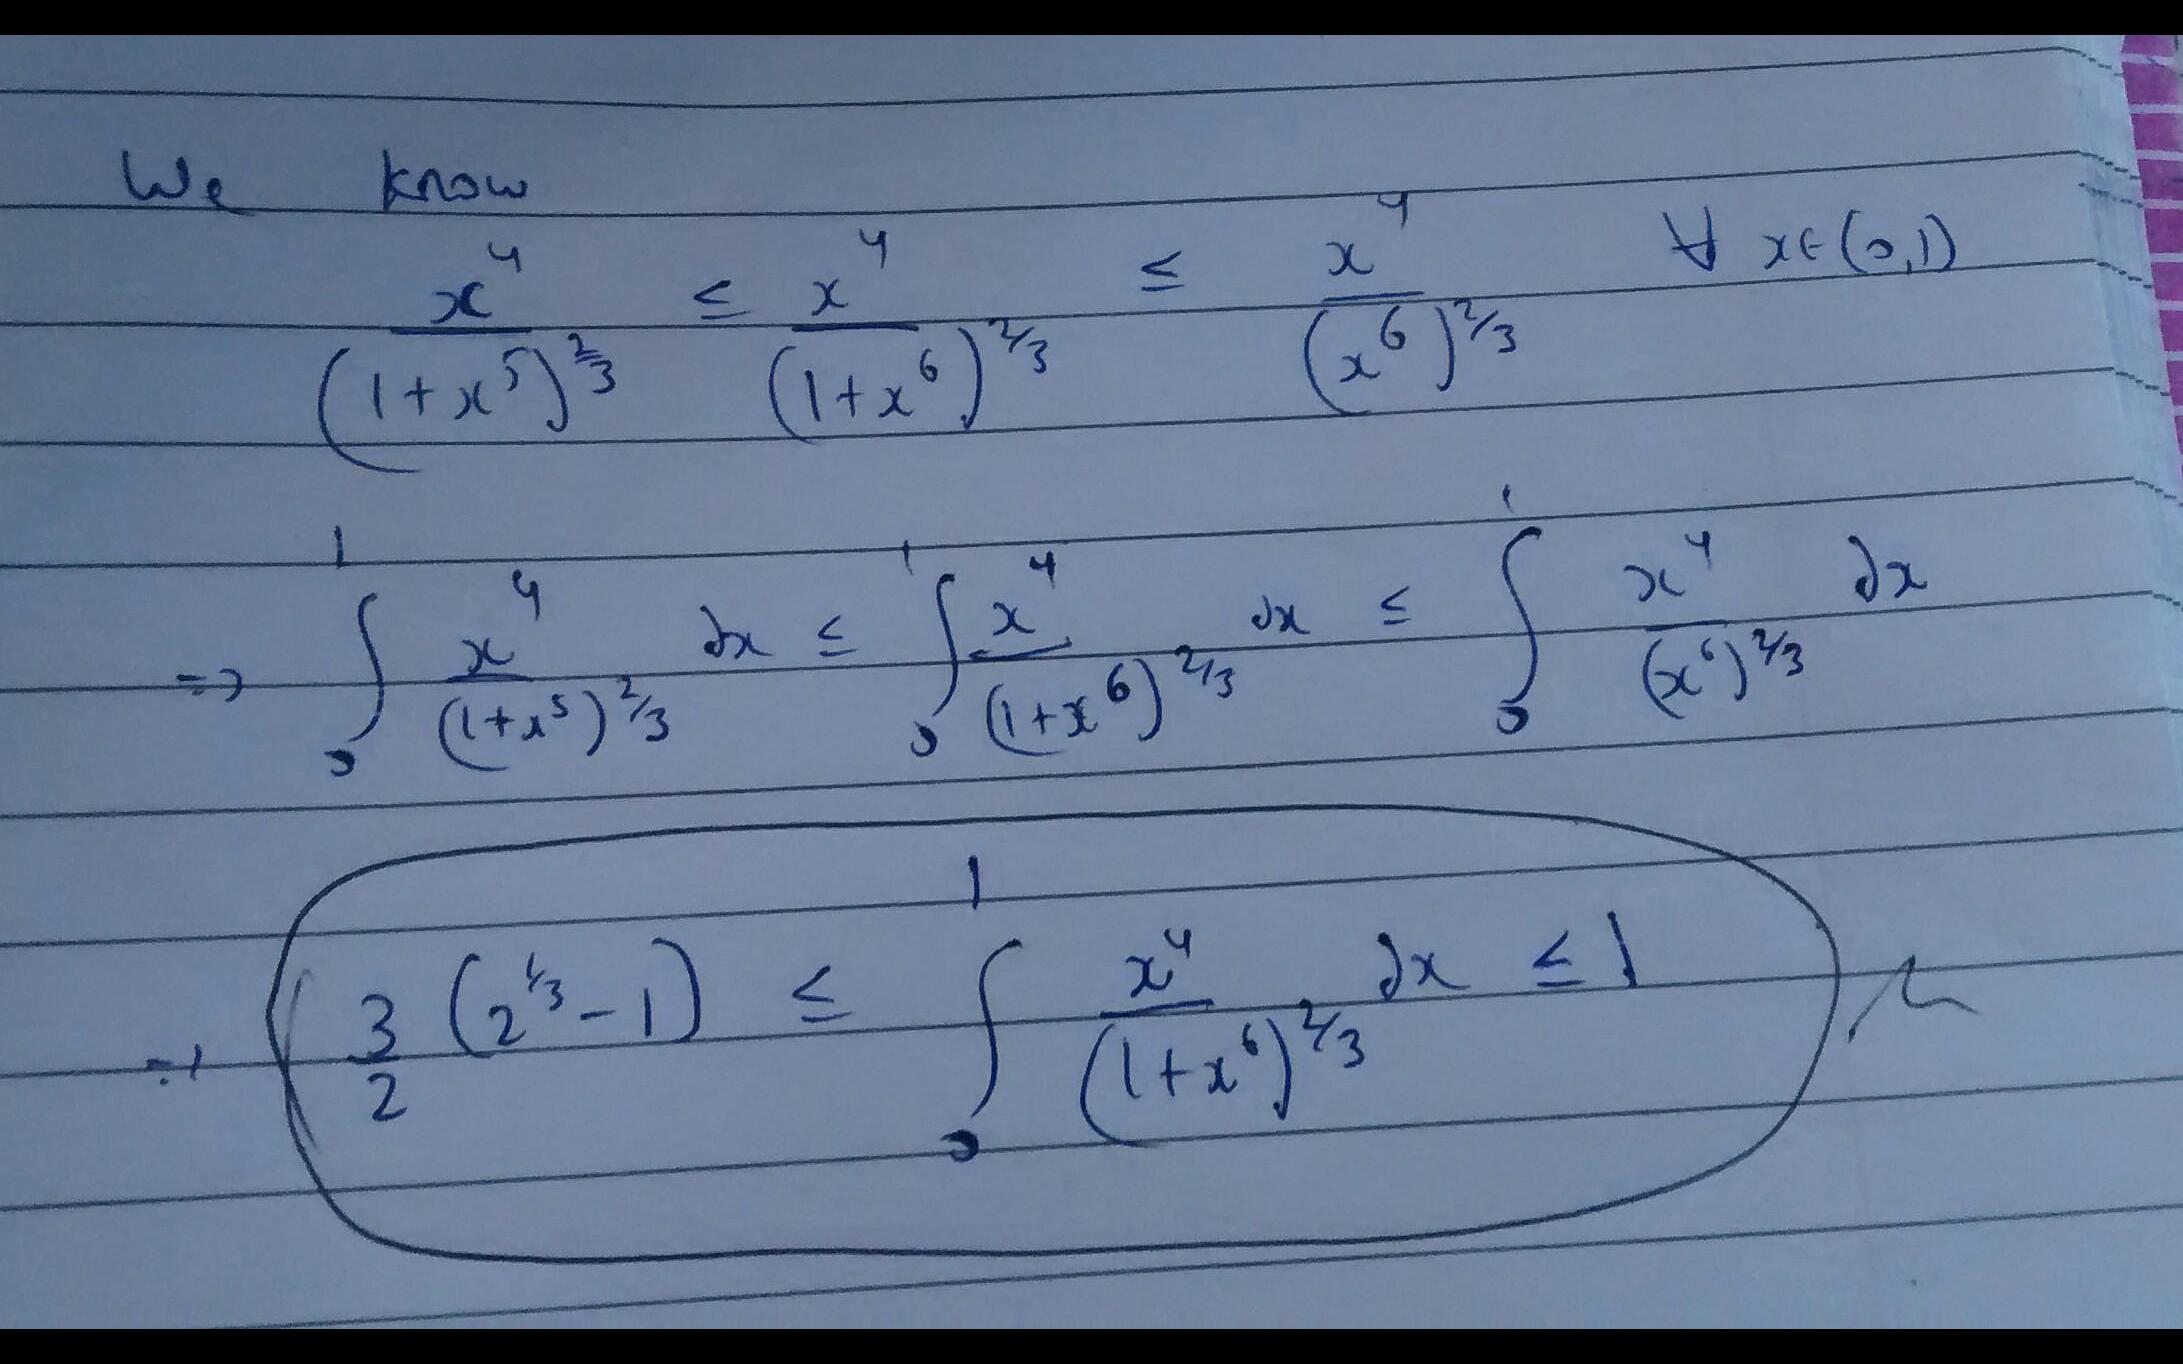 We know
x^4/(1+x^5)^{2/3} ≤ x^4/(1+x^6)^{2/3} ≤ x^4/(x^6)^{2/3} ∀ x∈(0,1)
=> ∫_0^1 x^4/(1+x^5)^{2/3} dx ≤ ∫_0^1 x^4/(1+x^6)^{2/3} dx ≤ ∫_0^1 x^4/(x^6)^{2/3} dx
=> 3/2 (2^{1/3} - 1) ≤ ∫_0^1 x^4/(1+x^6)^{2/3} dx ≤ 1